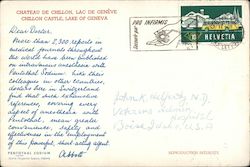 CHATEAU DE CHILLON, LAC DE GENÈVE
CHILLON CASTLE, LAKE OF GENEVA
Dear Doctor:
More than 2,300 reports in
medical journals throughout
the world have been published
on intravenous anesthesia with
Pentothal Sodium. Like their
colleagues in other countries,
doctors here in Switzerland
find that such extensive
references, covering every
aspect of anesthesia with
Pentothal, mean greater
convenience, safety and
effectiveness in the employment
of this powerful, fast acting agent.
Abbott
PENTOTHAL SODIUM
PRO INFIRMIS
HELVETIA
John R.
Veterans
Boise, Idaho
REPRODUCTION INTERDITE